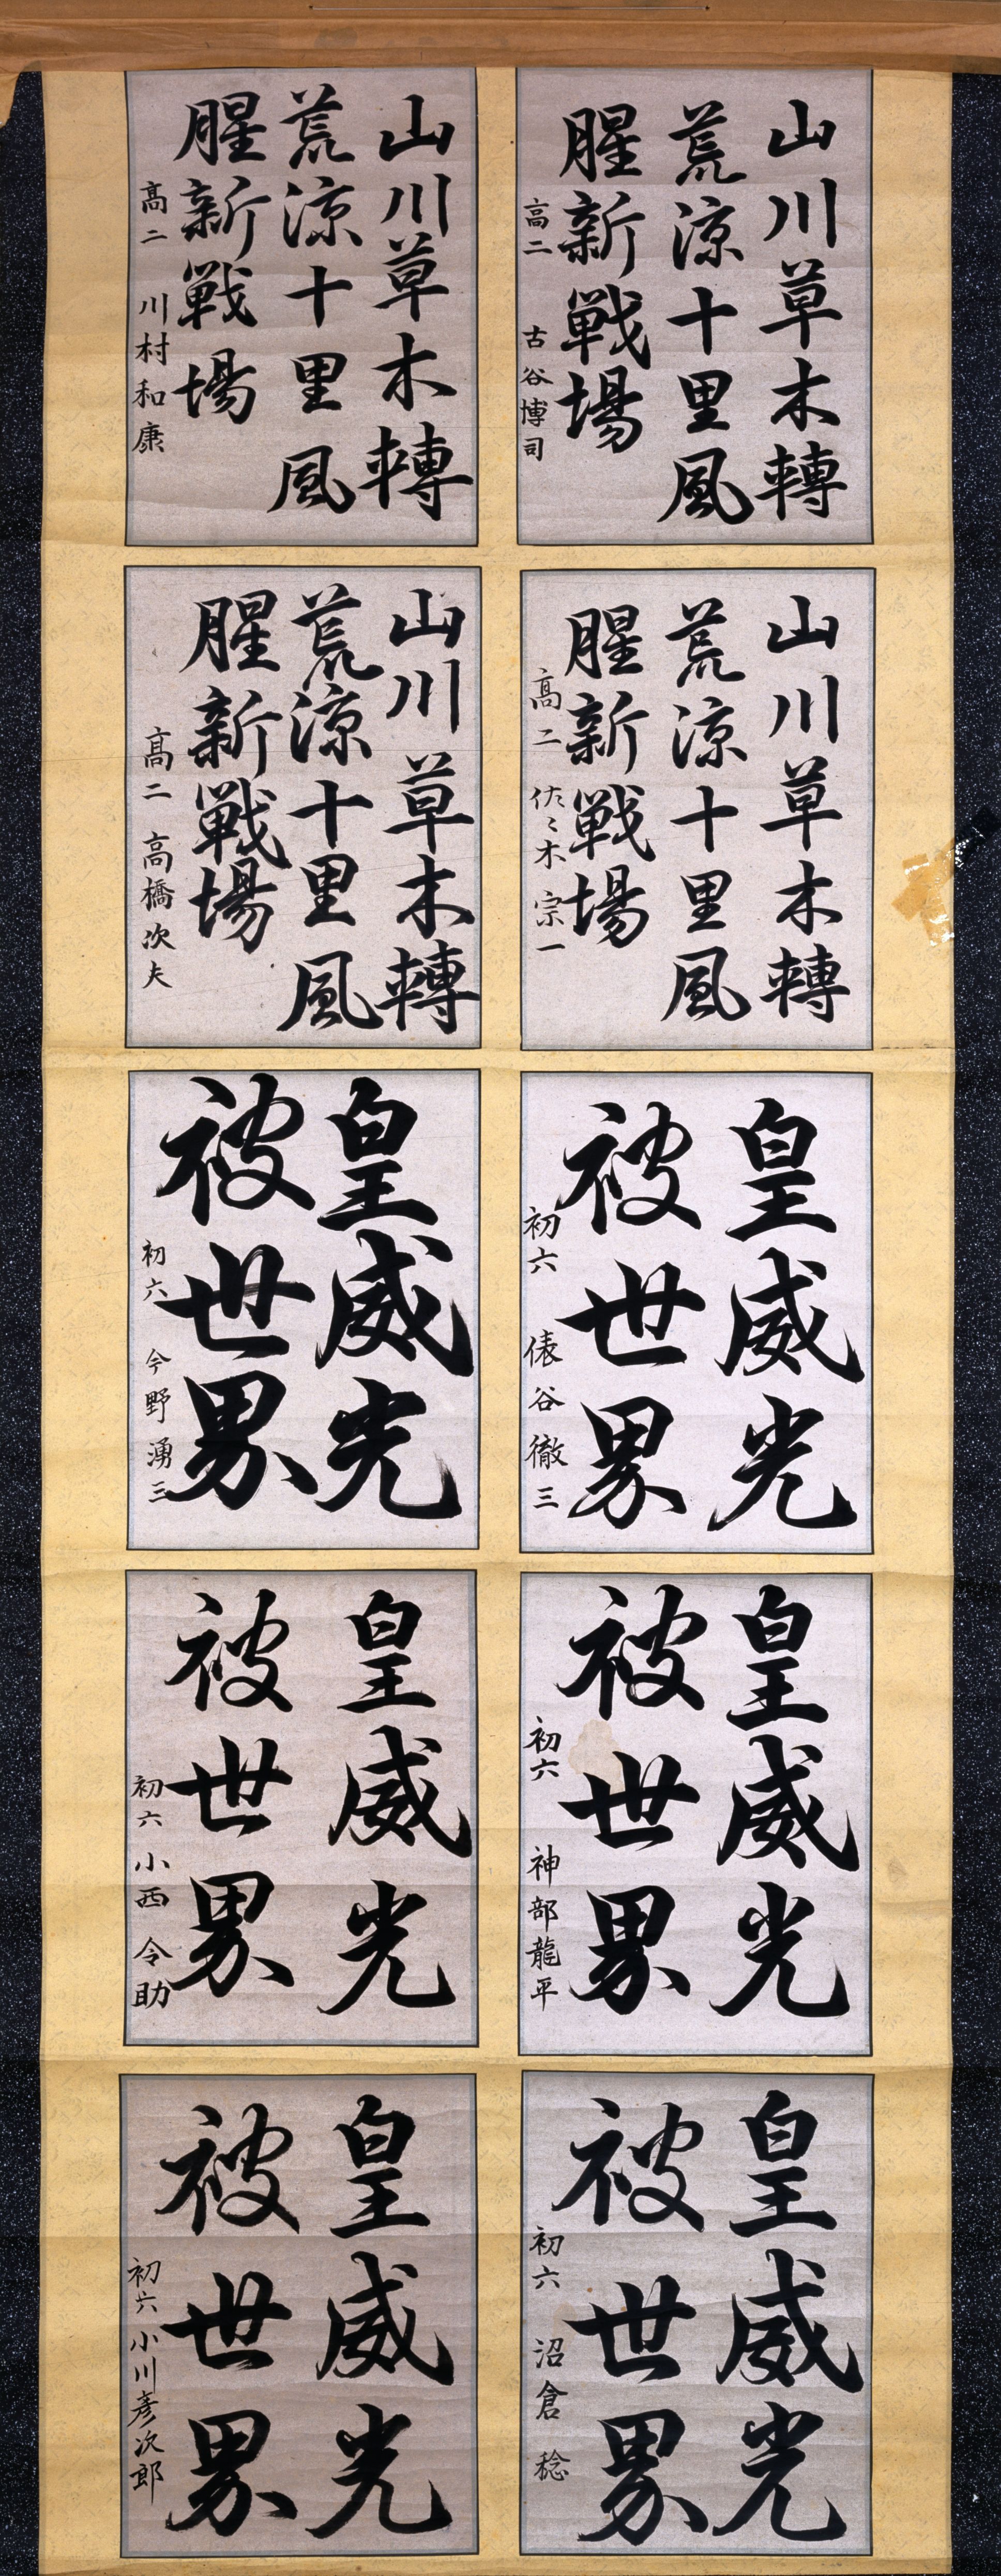 山川草木轉
荒涼十里風
腥新戦場
高二 古谷博司
山川草木轉
荒涼十里風
腥新戦場
高二 川村和康
山川草木轉
荒涼十里風
腥新戦場
高二 佐々木宗一
山川草木轉
荒涼十里風
腥新戦場
高二 高橋次夫
皇威光
被世界
初六 俵谷徹三
皇威光
被世界
初六 今野湧三
皇威光
被世界
初六 神部龍平
皇威光
被世界
初六 小西令助
皇威光
被世界
初六 沼倉稔
皇威光
被世界
初六 小川彦次郎